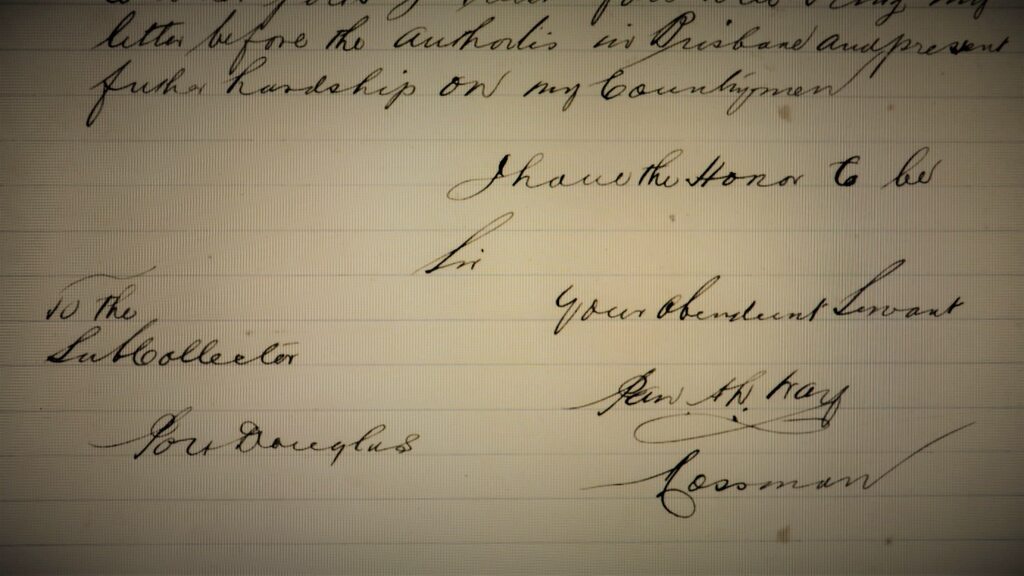 my
letter before the Authortis in Brisbane and present
futher hardship on my Countrymen
I have the Honor to be
Sir
To the
Your Obendient Servant
SubCollector
Ah.
Port Douglas
Mossman